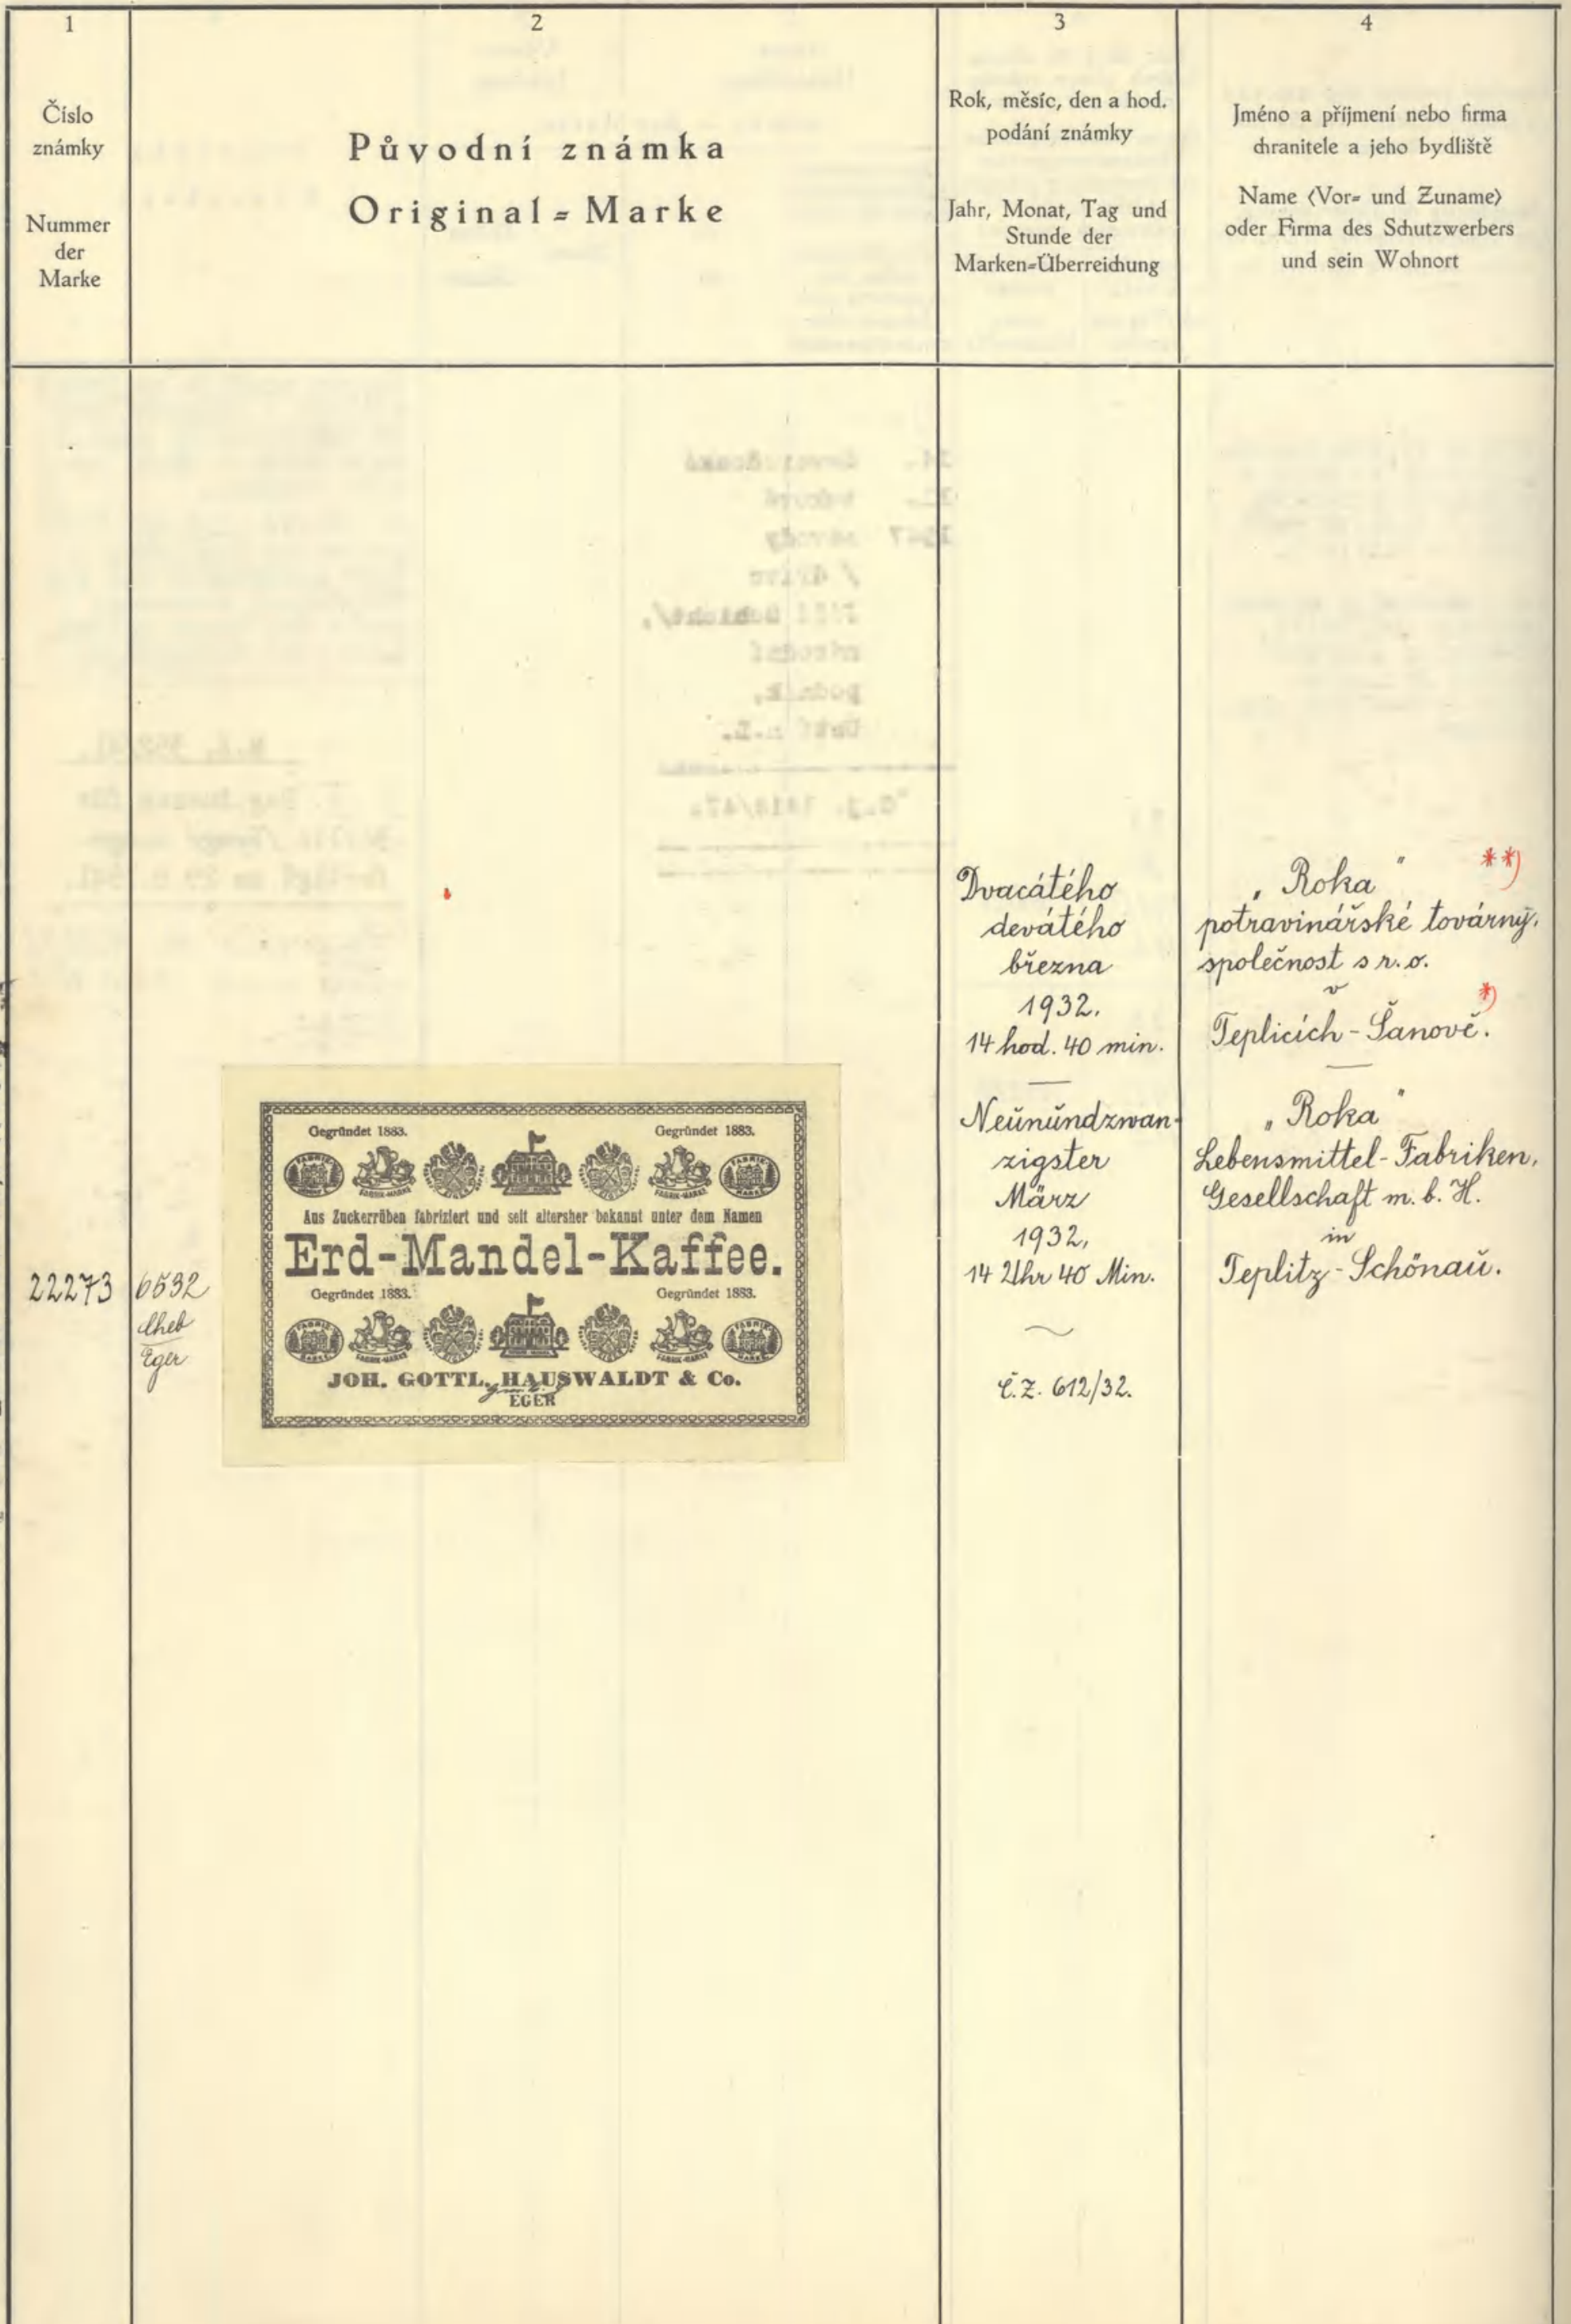 1
Číslo
známky
Nummer
der
Marke
2
Původní známka
Original-Marke
3
Rok, měsíc, den a hod.
podání známky
Jahr, Monat, Tag und
Stunde der
Marken-Überreichung
4
Jméno a příjmení nebo firma
chranitele a jeho bydliště
Name (Vor- und Zuname)
oder Firma des Schutzwerbers
und sein Wohnort
22273
6532
Cheb
Eger
Gegründet 1883. Gegründet 1883.
FABRIK MARKE FABRIK-MARKE FABRIK-MARKE FABRIK MARKE
Aus Zuckerrüben fabriziert und seit altersher bekannt unter dem Namen
Erd-Mandel-Kaffee.
Gegründet 1883. Gegründet 1883.
FABRIK MARKE FABRIK-MARKE FABRIK-MARKE FABRIK MARKE
JOH. GOTTL. HAUSWALDT & Co.
EGER
Dvacátého
devátého
března
1932.
14 hod. 40 min.
Neunundzwan-
zigster
März
1932,
14 Uhr 40 Min.
Č.Z. 612/32.
„Roka" **)
potravinářské továrny,
společnost s r. o.
v
Teplicích-Šanově. *)
„Roka"
Lebensmittel-Fabriken,
Gesellschaft m. b. H.
in
Teplitz-Schönau.